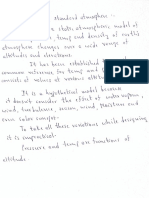 standard atmosphere :-
is a static atmospheric model of
, temp and density of earth's
atmosphere changes over a wide range of
altitudes and elevations.
It has been established
common reference for temp and
consists of values at various altitudes
It is a hypothetical model because
it doesn't consider the effect of water vapour,
wind, turbulence, moisture and
To take all these variations while designing
is impractical.
Pressure and temp are functions of
altitude